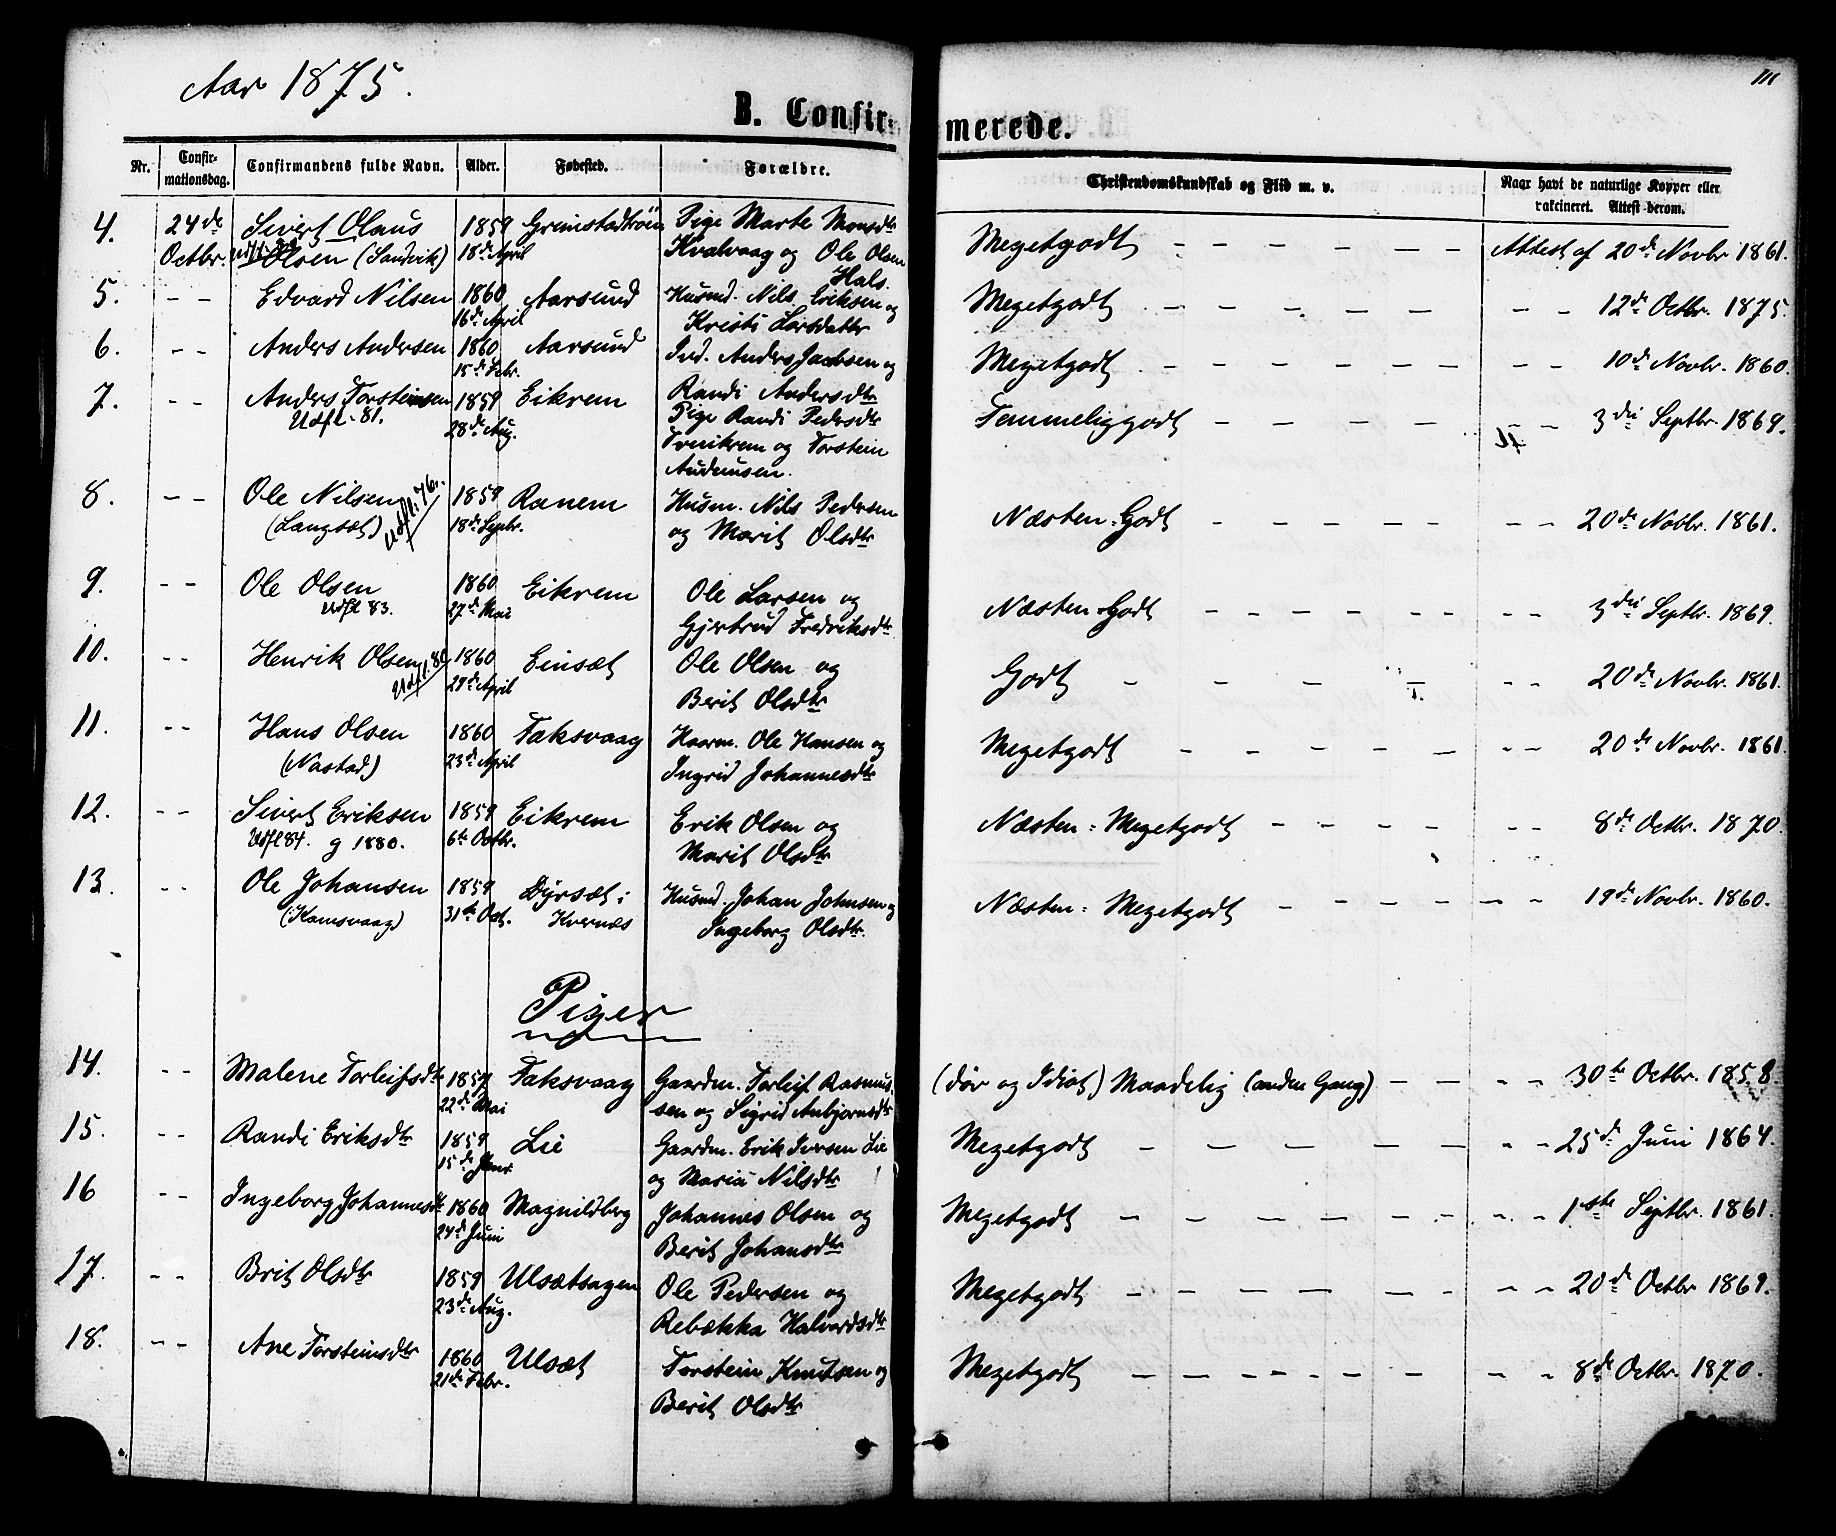 Aar 1875.
111
B. Confirmerede.
Nr. Confirmationsdag. Confirmandens fulde Navn. Alder. Fødested. Forældre. Christendomskundskab og Flid m. v. Naar havt de naturlige Kopper eller vakcineret. Attest derom.
4. 24de Sivert Olaus 1859 Grimstadtrøen Pige Marte Monsdtr Megetgodt - - - - - Attest af 20de Novbr 1861.
Octbr. Olsen (Sandvik) 18de April Kvalvaag og Ole Olsen
Hals.
5. - - Edvard Nilsen 1860 Aarsund Husmd. Nils Eriksen og Megetgodt - - - - - - - 12te Octbr. 1875.
16de April Kristi Larsdatter
6. - - Anders Andersen 1860 Aarsund Ind. Anders Jacobsen og Megetgodt - - - - - - - 10de Novbr. 1860.
15de Febr. Randi Andersdtr
7. - - Anders Torsteinsen 1859 Eikrem Pige Randi Pedersdtr Temmeliggodt - - - - - - 3die Septbr. 1869.
Udfl. 81. 28de Aug. Tveikrem og Torstein
Audensen.
8. - - Ole Nilsen 1859 Ranem Husm. Nils Pedersen Næsten-Godt - - - - - - - 20de Novbr. 1861.
(Langsæt) Udfl. 76. 18de Septr. og Marit Olsdtr
9. - - Ole Olsen 1860 Eikrem Ole Larsen og Næsten-Godt - - - - - - - - 3die Septbr. 1869.
Udfl 83. 27de Mai Gjertrud Fredriksdtr
10. - - Henrik Olsen 1860 Einsæt Ole Olsen og Godt - - - - - - 20de Novbr. 1861.
29de April Berit Olsdtr
11. - - Hans Olsen 1860 Taksvaag Ole Hansen og Megetgodt - - - - - - - 20de Novbr. 1861.
(Nastad) 23de April Ingrid Johannesdtr
12. - - Sivert Eriksen 1859 Eikrem Erik Olsen og Næsten-Megetgodt - - - - - - 8de Octbr. 1870.
Udfl 84. g 1880. 6te Octbr. Marit Olsdtr
13. - - Ole Johansen 1859 Dyrsæt i Husmd. Johan Johnsen og Næsten-Megetgodt - - - - - - 19de Novbr. 1860.
(Kamsvaag) 31te Oct. Kvernæs Ingeborg Olsdtr.
Piger
14. - - Malene Torleifsdtr 1859 Taksvaag Gaardm. Torleif Rasmus- (døv og Idiot) Maadelig (anden Gang) - - - - 30te Octbr. 1858.
22de Mai sen og Sigrid Anbjørnsdtr
15. - - Randi Eriksdtr 1859 Lie Gaardm. Erik Iversen Lie Megetgodt - - - - - - - 25de Juni 1864.
15de Janr og Maria Nilsdtr
16 - - Ingeborg Johannesdtr 1860 Magnildberg Johannes Olsen og Megetgodt - - - - - - - - 1ste Septbr. 1861.
24de Juni Berit Johansdtr
17. - - Brit Olsdtr 1859 Ulsætsagen Ole Pedersen og Megetgodt - - - - - - - - 20de Octbr 1869.
23de Aug. Rebækka Halvordsdtr
18. - - Ane Torsteinsdtr 1860 Ulsæt Torstein Knutsen og Megetgodt - - - - - - - - 8de Octbr. 1870.
21de Febr. Berit Olsdtr